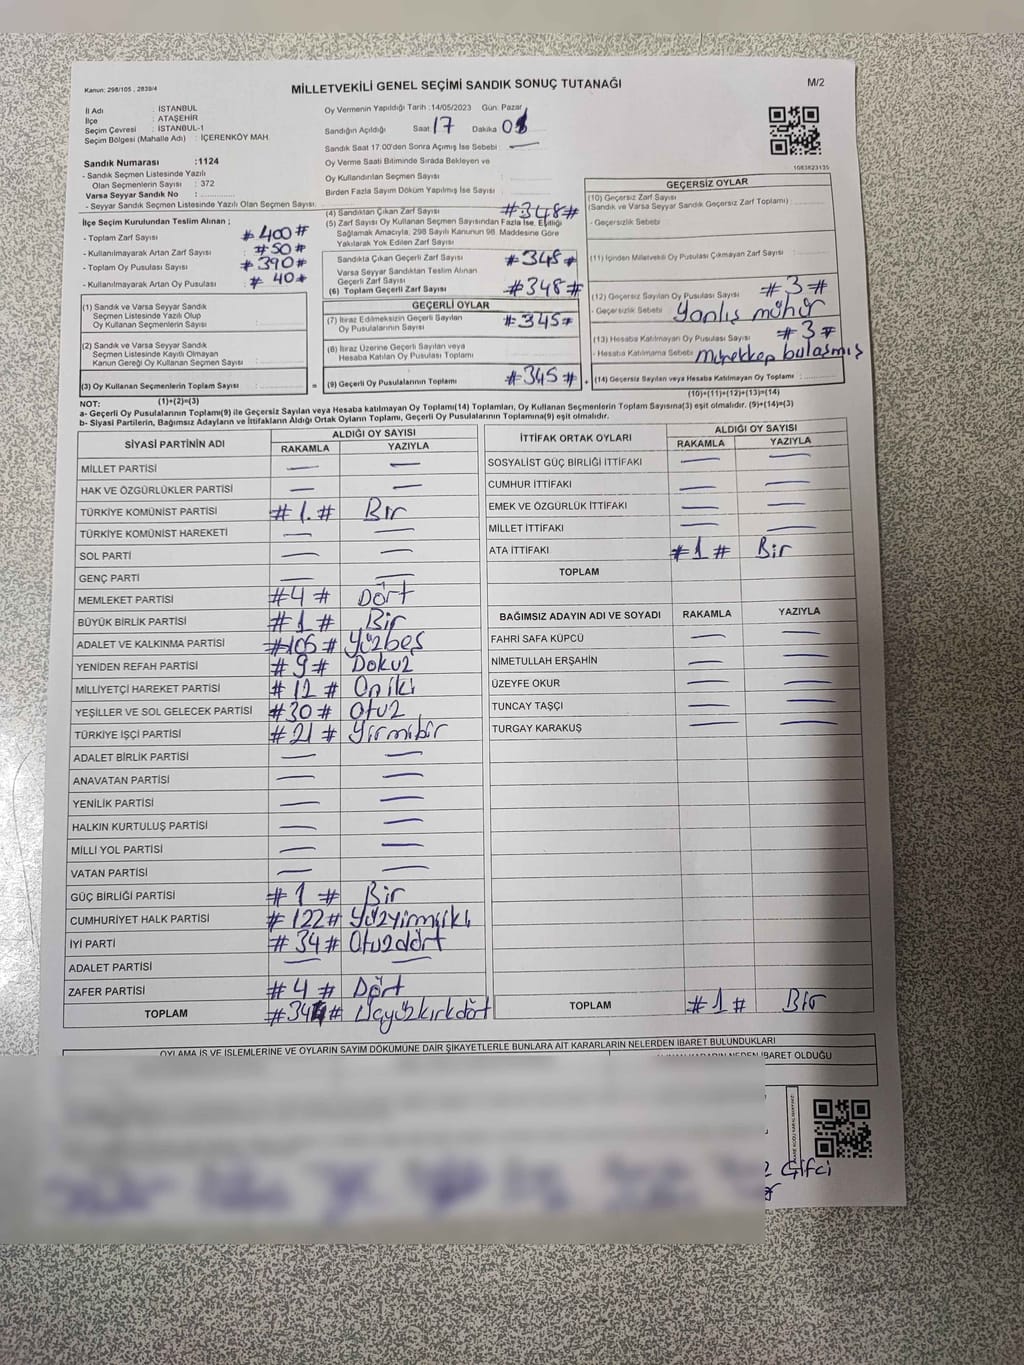 Kanun: 298/105 , 2839/4
MİLLETVEKİLİ GENEL SEÇİMİ SANDIK SONUÇ TUTANAĞI
M/2
İl Adı : İSTANBUL
İlçe : ATAŞEHİR
Seçim Çevresi : İSTANBUL-1
Seçim Bölgesi (Mahalle Adı) : İÇERENKÖY MAH.
Sandık Numarası :1124
- Sandık Seçmen Listesinde Yazılı
Olan Seçmenlerin Sayısı : 372
Varsa Seyyar Sandık No :
- Seyyar Sandık Seçmen Listesinde Yazılı Olan Seçmen Sayısı:
Oy Vermenin Yapıldığı Tarih :14/05/2023 Gün: Pazar
Sandığın Açıldığı Saat: 17 Dakika
Sandık Saat 17.00'den Sonra Açımış İse Sebebi : —
Oy Verme Saati Bitiminde Sırada Bekleyen ve
Oy Kullandırılan Seçmen Sayısı :
Birden Fazla Sayım Döküm Yapılmış İse Sayısı :
1083823135
İlçe Seçim Kurulundan Teslim Alınan ;
- Toplam Zarf Sayısı : #400#
- Kullanılmayarak Artan Zarf Sayısı : #50#
- Toplam Oy Pusulası Sayısı : #390#
- Kullanılmayarak Artan Oy Pusulası : #40#
(1) Sandık ve Varsa Seyyar Sandık
Seçmen Listesinde Yazılı Olup
Oy Kullanan Seçmenlerin Sayısı :
(2) Sandık ve Varsa Seyyar Sandık
Seçmen Listesinde Kayıtlı Olmayan
Kanun Gereği Oy Kullanan Seçmen Sayısı :
(3) Oy Kullanan Seçmenlerin Toplam Sayısı :
(1)+(2)=(3)
(4) Sandıktan Çıkan Zarf Sayısı #348#
(5) Zarf Sayısı Oy Kullanan Seçmen Sayısından Fazla İse, Eşitliği
Sağlamak Amacıyla, 298 Sayılı Kanunun 98. Maddesine Göre
Yakılarak Yok Edilen Zarf Sayısı :
Sandıkta Çıkan Geçerli Zarf Sayısı : #348#
Varsa Seyyar Sandıktan Teslim Alınan
Geçerli Zarf Sayısı :
(6) Toplam Geçerli Zarf Sayısı : #348#
GEÇERLİ OYLAR
(7) İtiraz Edilmeksizin Geçerli Sayılan
Oy Pusulalarının Sayısı : #345#
(8) İtiraz Üzerine Geçerli Sayılan veya
Hesaba Katılan Oy Pusulası Toplamı :
= (9) Geçerli Oy Pusulalarının Toplamı : #345# +
GEÇERSİZ OYLAR
(10) Geçersiz Zarf Sayısı
(Sandık ve Varsa Seyyar Sandık Geçersiz Zarf Toplamı) :
- Geçersizlik Sebebi :
(11) İçinden Milletvekili Oy Pusulası Çıkmayan Zarf Sayısı :
(12) Geçersiz Sayılan Oy Pusulası Sayısı : #3#
- Geçersizlik Sebebi : Yanlış mühür
(13) Hesaba Katılmayan Oy Pusulası Sayısı : #3#
- Hesaba Katılmama Sebebi : Mürekkep bulaşmış
(14) Geçersiz Sayılan veya Hesaba Katılmayan Oy Toplamı :
(10)+(11)+(12)+(13)=(14)
NOT:
a- Geçerli Oy Pusulalarının Toplamı(9) ile Geçersiz Sayılan veya Hesaba katılmayan Oy Toplamı(14) Toplamları, Oy Kullanan Seçmenlerin Toplam Sayısına(3) eşit olmalıdır. (9)+(14)=(3)
b- Siyasi Partilerin, Bağımsız Adayların ve İttifakların Aldığı Ortak Oyların Toplamı, Geçerli Oy Pusulalarının Toplamına(9) eşit olmalıdır.
SİYASİ PARTİNİN ADI ALDIĞI OY SAYISI
RAKAMLA YAZIYLA
MİLLET PARTİSİ — —
HAK VE ÖZGÜRLÜKLER PARTİSİ — —
TÜRKİYE KOMÜNİST PARTİSİ #1.# Bir
TÜRKİYE KOMÜNİST HAREKETİ — —
SOL PARTİ — —
GENÇ PARTİ — —
MEMLEKET PARTİSİ #4# Dört
BÜYÜK BİRLİK PARTİSİ #1# Bir
ADALET VE KALKINMA PARTİSİ #105# Yüzbeş
YENİDEN REFAH PARTİSİ #9# Dokuz
MİLLİYETÇİ HAREKET PARTİSİ #12# Oniki
YEŞİLLER VE SOL GELECEK PARTİSİ #30# Otuz
TÜRKİYE İŞÇİ PARTİSİ #21# Yirmibir
ADALET BİRLİK PARTİSİ — —
ANAVATAN PARTİSİ — —
YENİLİK PARTİSİ — —
HALKIN KURTULUŞ PARTİSİ — —
MİLLİ YOL PARTİSİ — —
VATAN PARTİSİ — —
GÜÇ BİRLİĞİ PARTİSİ #1# Bir
CUMHURİYET HALK PARTİSİ #122# Yüzyirmiiki
İYİ PARTİ #34# Otuzdört
ADALET PARTİSİ — —
ZAFER PARTİSİ #4# Dört
TOPLAM #344# Üçyüzkırkdört
İTTİFAK ORTAK OYLARI ALDIĞI OY SAYISI
RAKAMLA YAZIYLA
SOSYALİST GÜÇ BİRLİĞİ İTTİFAKI — —
CUMHUR İTTİFAKI — —
EMEK VE ÖZGÜRLÜK İTTİFAKI — —
MİLLET İTTİFAKI — —
ATA İTTİFAKI #1# Bir
TOPLAM
BAĞIMSIZ ADAYIN ADI VE SOYADI RAKAMLA YAZIYLA
FAHRİ SAFA KÜPCÜ — —
NİMETULLAH ERŞAHİN — —
ÜZEYFE OKUR — —
TUNCAY TAŞÇI — —
TURGAY KARAKUŞ — —
TOPLAM #1# Bir
OYLAMA İŞ VE İŞLEMLERİNE VE OYLARIN SAYIM DÖKÜMÜNE DAİR ŞİKAYETLERLE BUNLARA AİT KARARLARIN NELERDEN İBARET BULUNDUKLARI
NEDEN İBARET OLDUĞU
Çifci